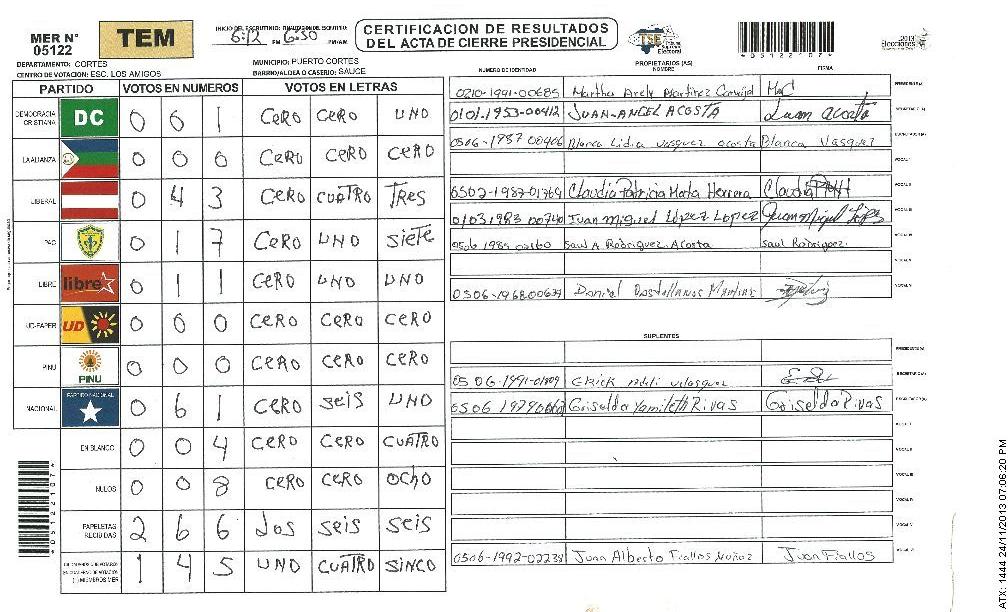 MER N° 05122
TEM
INICIO DEL ESCRUTINIO: 6:12 PM
6:50 PM/AM
CERTIFICACION DE RESULTADOS DEL ACTA DE CIERRE PRESIDENCIAL
TSE Tribunal Supremo Electoral
2013 Elecciones
DEPARTAMENTO: CORTES
MUNICIPIO: PUERTO CORTES
CENTRO DE VOTACION: ESC. LOS AMIGOS
BARRIO/ALDEA O CASERIO: SAUCE
PARTIDO VOTOS EN NUMEROS VOTOS EN LETRAS
DEMOCRACIA CRISTIANA DC 0 6 1 CERO CERO UNO
LA ALIANZA 0 0 0 CERO CERO CERO
LIBERAL 0 4 3 CERO CUATRO TRES
PAC 0 1 7 CERO UNO SIETE
LIBRE libre 0 1 1 CERO UNO UNO
UD-FAPER UD 0 0 0 CERO CERO CERO
PINU PINU 0 0 0 CERO CERO CERO
NACIONAL PARTIDO NACIONAL 0 6 1 CERO SEIS UNO
EN BLANCO 0 0 4 CERO CERO CUATRO
NULOS 0 0 8 CERO CERO OCHO
PAPELETAS RECIBIDAS 2 6 6 dos seis seis
1 4 5 UNO CUATRO SINCO
*05122107*
PROPIETARIOS (AS)
NUMERO DE IDENTIDAD NOMBRE FIRMA
0210-1991-00685 Martha Arely Martinez
PRESIDENTE(A)
0101-1953-00412 JUAN-ANGEL ACOSTA Juan Acosta
SECRETARIO(A)
Blanca Lidia Vasquez acosta Blanca Vasquez
ESCRUTADOR(A)
VOCAL I
0502-1987-01769 Claudia Patricia Herrera Claudia
VOCAL II
Juan Miguel López Lopez Juan Miguel López
VOCAL III
0506 1985 Saul A Rodriguez Acosta Saul Rodriguez.
VOCAL IV
VOCAL V
Daniel
VOCAL VI
SUPLENTES
PRESIDENTE(A)
0506-1991-01809 Erick Velasquez
SECRETARIO(A)
0506 Griselda Yamileth Rivas Griselda Rivas
ESCRUTADOR(A)
VOCAL I
VOCAL II
VOCAL III
VOCAL IV
VOCAL V
Juan Alberto Fiallos Muñoz Juan Fiallos
VOCAL VI
ATX: 1444 24/11/2013 07:06:20 PM